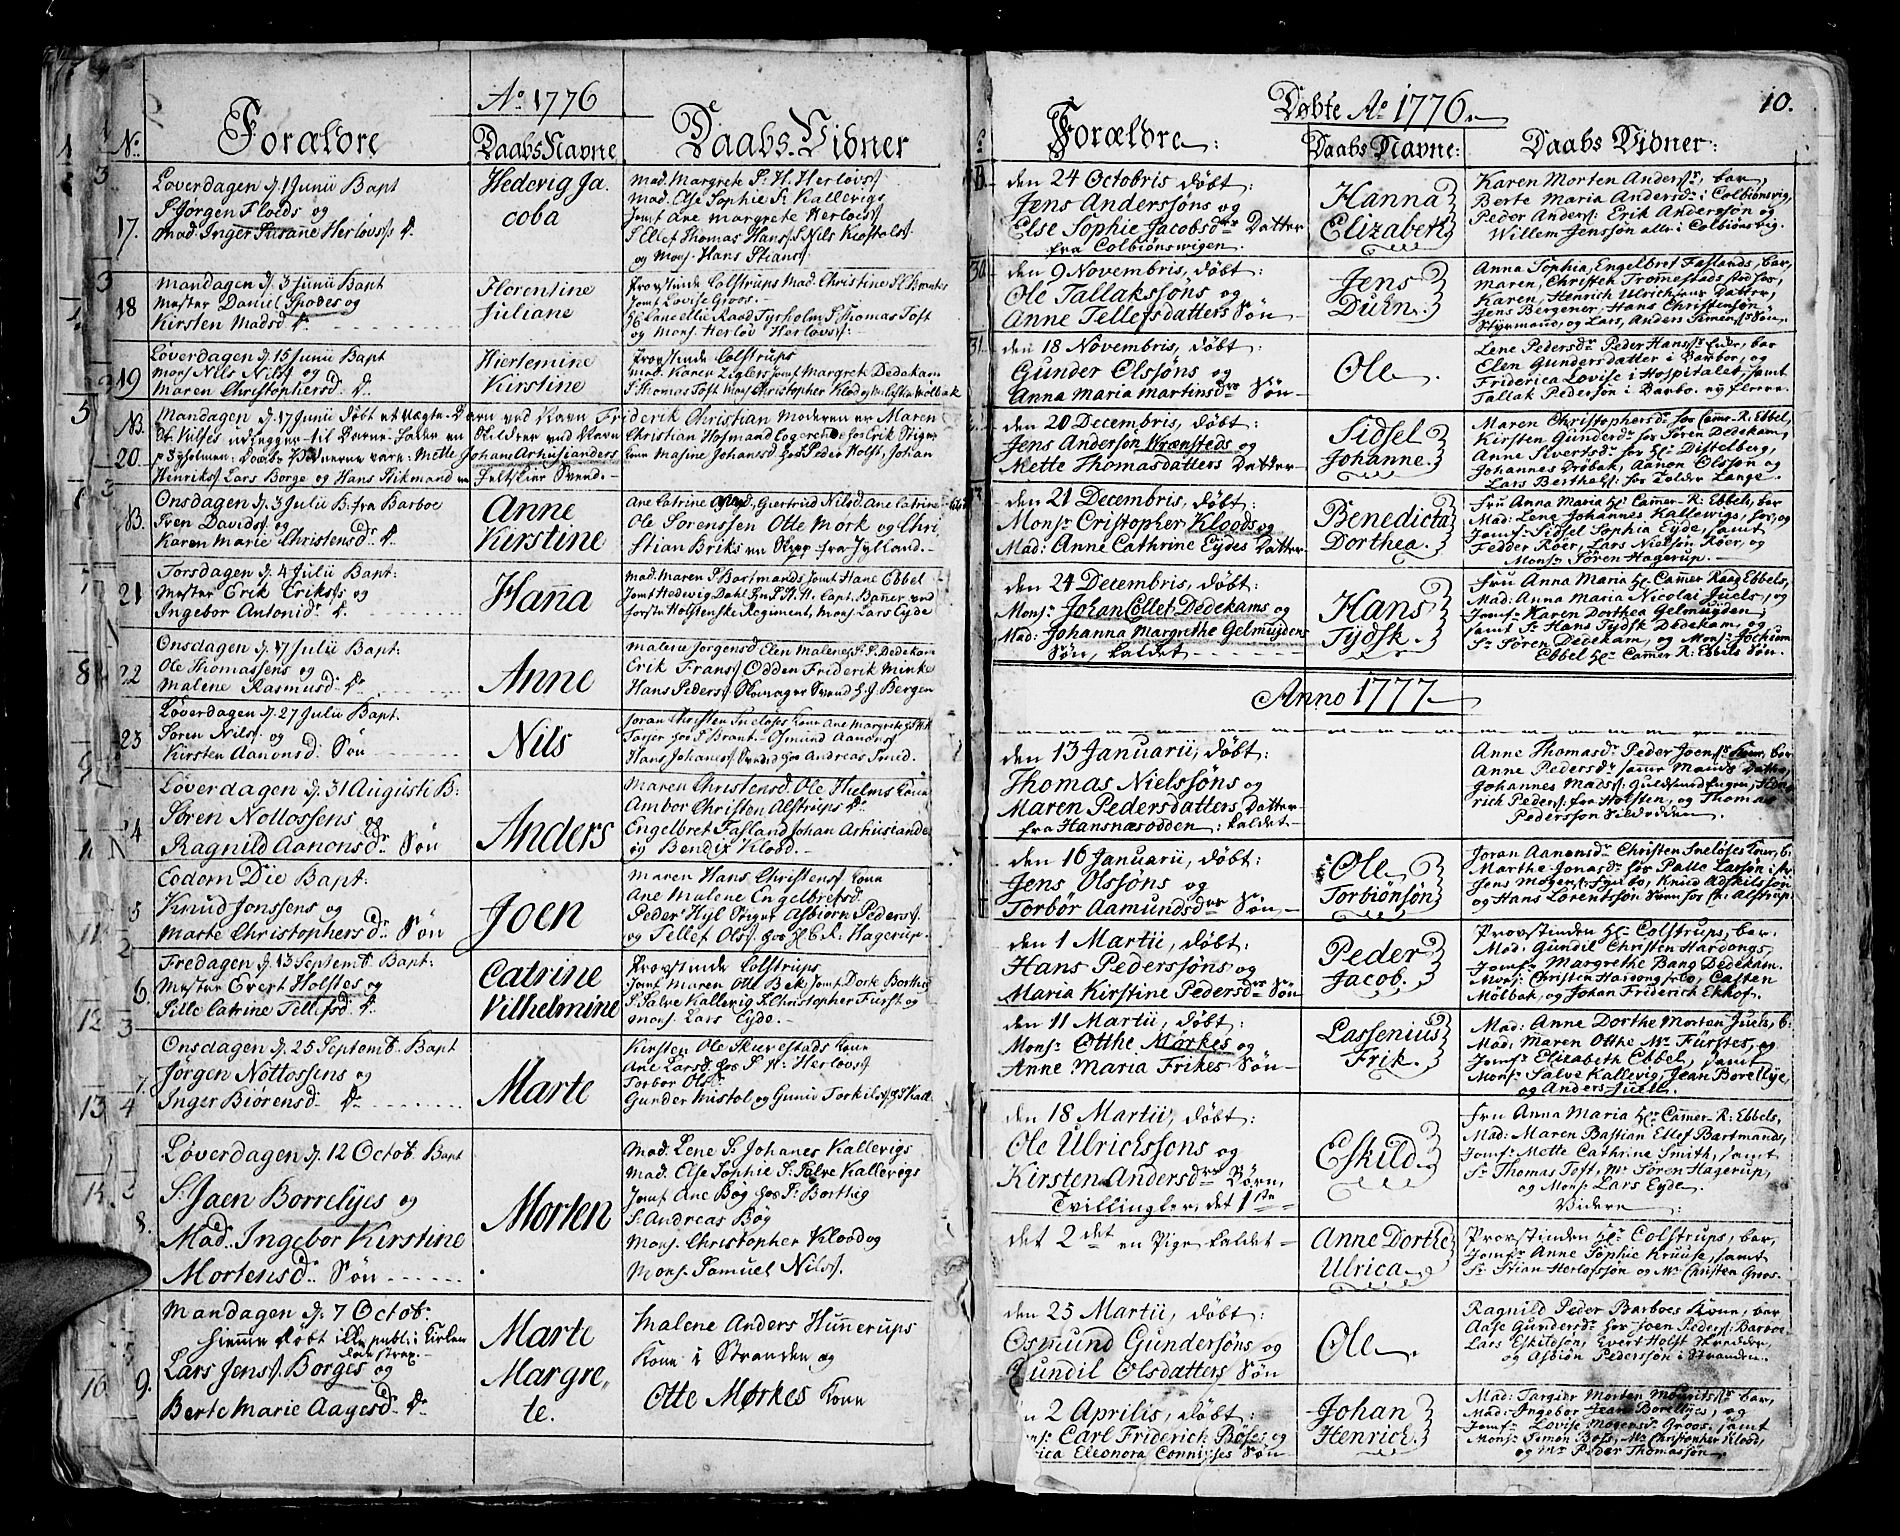 Aº 1776
Nº
Forældre
Daabs Navne
Daabs Vidner
17.
Løverdagen d. 1 Junii Bapt
S. Jørgen Floeds og
Mad. Inger Susane Herlovs: Dr.
Hedevig Ja-
coba
Mad. Margrete Sr. H. Herlovs
Mad. Else Sophie Sr. Kallevigs
Jomf. Ane Margrete Herlovs
S. Ellef Thomas Hans S. Nils
og Mons. Hans Stians
18
Mandagen d. 3 Junii Bapt
Mester Daniel og
Kirsten Madsd. Dr.
Florentine
Juliane
Provstinde Colstrups Mad. Christine S. Brantes
Jomf. Lovise Groos.
Raad Tyrholm S. Thomas Toft
og Mons. Herlov Herlovs:
19
Løverdagen d. 15 Junii Bapt
Mons. Nils og
Maren Christophersd. Dr.
Hiertemine
Kirstine
Provstinde Colstrups
Mad. Karen Ziglers Jomf. Margret Dedekam
S. Thomas Toft Mons. Christopher Klod og Mr. Casten Mølbak
NB.
20.
Mandagen d. 17 Junii døbt et uægte Barn ved Navn Friderik Christian Moderen er Maren
Christian Hofmand hos Erik Stiger
Daabs Vidnerne vare: Mette Johans Arhusianders Kone Masine Johansd. hos Peder Holst, Johan
Henriks, Lars Borge og Hans Stikmand en Feltskier Svend.
NB.
Onsdagen d. 3 Julii B. fra Barboe
Sven Davids og
Karen Marie Christensd. Dr.
Anne
Kirstine
Ane Catrine Giertrud Nilsd. Ane Catrine
Ole Sørenssen Otte Mørk og Chri
stian Briks en Skipp. fra Jylland.
21
Torsdagen d. 4 Julii Bapt:
Mester Erik Eriks og
Ingebor Antonid. Dr.
Hanna
Mad. Maren S. Bortmands Jomf. Hane Ebbel
Jomf. Hedevig Dahl Capt. Baner ved
første Holstenske Regiment, Mons. Lars Eyde
22
Onsdagen d. 17 Julii Bapt:
Ole Thomassens og
Malene Rasmusd. Dr.
Anne
Malene Jørgensd. Elen Malene S. Dedekam
Erik Frans Odden Friderik Minke
Hans Peders Skomager Svend Bergen
23
Løverdagen d. 27 Julii Bapt.
Søren Nils og
Kirsten Aanonsd: Søn
Nils
Joran Christen Sneløses Kone Ane Margrete
Tarjer hos S. Brant Osmund Aanons
Hans Johans Svend hos Andreas Smed.
24
Løverdagen d. 31 Augusti B:
Søren Nottossens og
Ragnild Aanonsdr. Søn
Anders
Maren Christensd. Ole Thelms Kone
Ambor Christen Alstrups Dr.
Engelbret Fasland Johan Arhusiander
og Bendix Klood.
5
Eodem Die Bapt:
Knud Jonssens og
Marte Christophersdr. Søn
Joen
Maren Hans Christens Kone
Ane Malene Engelbretsd.
Peder Hyl Asbiørn Peders
og Tellef Ols hos Hagerup.
6.
Fredagen d. 13 Septembr. Bapt:
Mester Evert Holstes og
Sille Catrine Tellefsd. Dr.
Catrine
Vilhelmine
Provstinde Colstrups
Jomf. Maren Otte Bek Jomf. Dorte Borthus
S. Salve Kallevig S. Christopher Fürst og
Mons. Lars Eyde.
7.
Onsdagen d. 25 Septembr. Bapt
Jørgen Nottossens og
Inger Biørensd. Dr.
Marte
Kirsten Ole Skurestads Kone
Ane Larsd. hos S. H. Herlovs
Torbor Olsd.
Gunder Mistol og Guniv Torkils
8.
Løverdagen d. 12 Octob. Bapt
S. Jaen Borrelyes og
Mad. Ingebor Kirstine
Mortensd. Søn
Morten
Mad. Lene S. Johanes Kallevigs
Mad. Else Sophie S. Salve Kallevigs
Jomf. Ane Bøg hos S. Borthig
S. Andreas Bøg
Mons. Christopher Klood og
Mons. Samuel Nils.
9.
Mandagen d. 7 Octob.
hiemme døbt ikke publ: i Kirken
Lars Jens Borges og
Berte Marie Aagesd. Dr.
Marte
Margre-
te.
Malene Anders Hunnerups
Kone i Stranden og
Otte Mørkes Kone
Døbte Aº 1776.
10.
Forældre:
Daabs Navne:
Daabs Vidner:
den 24 Octobris døbt:
Jens Anderssøns og
Else Sophie Jacobsdrs. Datter
fra Colbiønswigen.
Hanna
Elizabeth
Karen Morten Anders, bar,
Berte Maria Andersdr. i Colbiønsvig,
Peder Anders. Erik Anderssøn og
Willem Jenssøn alle i Colbiønsvig.
30
den 9 Novembris, døbt:
Ole Tallakssøns og
Anne Tellefsdatters Søn
Jens
Durn.
Anna Sophia, Engelbret Faslands, bar,
Maren, Christen Tromestads
Karen, Henrich Ulrichsens Datter,
Jens Bergener, Hans Christensøn,
Styrmand, og Lars, Anders Søn.
31.
den 18 Novembris, døbt:
Gunder Olssøns og
Anna Maria Martinsdrs. Søn
Ole.
Lene Pedersdr. Peder Hans, bar
Elen Gundersdatter i Barbor, og
Friderica Lovise i Hospitalet, samt
Tallak Pedersøn i Barbo. og flere.
den 20 Decembris, døbt:
Jens Andersøn og
Mette Thomasdatters Datter
Sidsel
Johanne.
Maren Christophersdr. hos Camer R. Ebbel,
Kirsten Gundersdr. hos Søren Dedekam,
Anne Sivertsdr. hos Hr. Distelberg,
Johannes Drøbak, Aanon Olssøn og
Lars Berthels: hos Tolder Lange.
den 21 Decembris, døbt:
Monsr. Cristopher Kloods og
Mad: Anne Cathrine Eydes Datter
Benedicta
Dorthea.
Fru Anna Maria Hr. Camer: R: Ebbels, bar
Mad: Lene Johannes Kallewigs, og
Jomfr. Sidsel Sophia Eyde, samt
Fedder Röer, Lars Nielsøn Röer, og
Monsr. Søren Hagerup.
den 24 Decembris, døbt:
Monsr. Johan Collet Dedekams og
Mad: Johanna Margrethe Gelmuydens
Søn, kaldet
Hans
Tydsk.
Fru Anna Maria Hr. Camer Raad Ebbels,
Mad: Anna Maria Nicolai Juels, og
Jomfr. Karen Dorthea Gelmuyden,
samt Sr. Hans Tydsk Dedekam, og
Sr. Søren Dedekam, og Monsr. Jochum
Ebbel Hr. Camer R: Ebbels Søn.
Anno 1777.
den 13 Januarii, døbt:
Thomas Nielssøns og
Maren Pedersdatters Datter
fra Hansnæsodden: kaldet
Anne Thomasdr. Peder Joens Kone, bar
Anne Pedersdr. samme Mands Datter,
Johannes Mads. Guldsmed Eugen, Hen-
rich Peders. fra Holsten, og Thomas
Pedersøn
den 16 Januarii, døbt:
Jens Olssøns og
Torbør Aamundsdrs. Søn
Ole
Torbiønsøn
Joran Aanonsdr. Christen Sneløses Kone, b:
Marthe Jonasdr. hos Palle Larsøn,
Jens Mogens, Knud Adskilsøn
og Hans Lorentssøn Svenn hos Chr. Alstrup.
den 1 Martii, døbt:
Hans Pederssøns og
Maria Kirstine Pedersdrs. Søn
Peder
Jacob.
Provstinden Hr. Colstrups, bar.
Mad: Gundil Christen Hardongs,
Jomfr. Margrethe Bang Dedekam.
Monsr. Christen Hardong, Casten
Mølbak, og Johan Friderich Ekhof.
den 11 Martii, døbt:
Monsr. Otthe Mørkes og
Anne Maria Frikes Søn
Lassenius
Frik.
Mad: Anne Dorthe Morten Juels, b:
Mad: Maren Otthe Mr. Fürstes, og
Jomfr. Elizabeth Ebbel, samt
Monsr. Salve Kallevig, Jean Borellye,
og Anders Juell.
den 18 Martii, døbt:
Ole Ulrichssøns og
Kirsten Andersdrs. Børn,
Tvillinger, det 1ste
Eskild
Fru Anna Maria Hr. Camer R: Ebbels,
Mad: Maren Bastian Ellef Bartmands,
Jomfr. Mette Cathrine Smith, samt
Sr. Thomas Toft, Mr. Søren Hagerup,
og Monsr. Lars Eyde.
Videre:
det 2det en Pige kaldet
Anne Dorthe
Ulrica.
Provstinden Hr. Colstrups, bar,
Jomfr. Anne Sophie Kruuse, samt
Sr. Stian Herlofssøn og Mr. Christen Groos.
den 25 Martii, døbt:
Osmund Gundersøns og
Gundil Olsdatters Søn
Ole.
Ragnild Peder Barboes Kone, bar
Aase Gundersdr. hos Joen Peders: Barboe
Lars Eskildsøn, Evert Holst Skrædder
og Asbiøn Pederssøn i Stranden.
2 Aprilis, døbt:
Carl Friderich Boses og
Eleonora Connisses Søn
Johan
Henrich.
Mad: Targier Morten Mouritss. bar,
Mad: Ingebor Jean Borellyes, og
Jomfr. Lovise Mogensdr. Groos, samt
Monsr. Simon Boss, Mr. Christopher Klood,
og Mr. Peder Thomassøn.